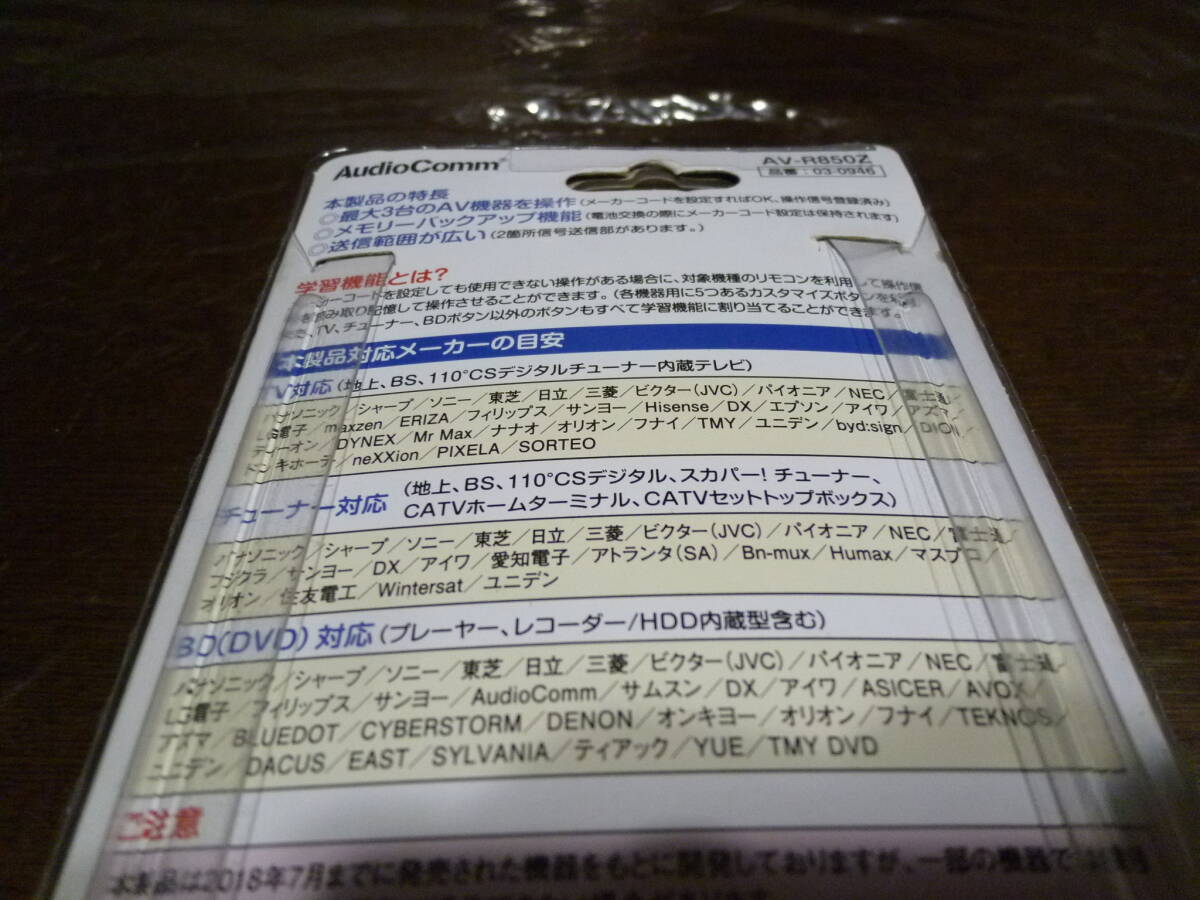 AudioComm®
AV-R850Z
品番：03-0946
本製品の特長
◎最大3台のAV機器を操作（メーカーコードを設定すればOK、操作信号登録済み）
◎メモリーバックアップ機能（電池交換の際にメーカーコード設定は保持されます）
◎送信範囲が広い（2箇所信号送信部があります。）
学習機能とは？
カーコードを設定しても使用できない操作がある場合に、対象機種のリモコンを利用して操作信
読み取り記憶して操作させることができます。（各機器用に5つあるカスタマイズボタンを
、TV、チューナー、BDボタン以外のボタンもすべて学習機能に割り当てることができ
本製品対応メーカーの目安
TV対応（地上、BS、110°CSデジタルチューナー内蔵テレビ）
パナソニック／シャープ／ソニー／東芝／日立／三菱／ビクター（JVC）／パイオニア／NEC／富士通／
LG電子／maxzen／ERIZA／フィリップス／サンヨー／Hisense／DX／エプソン／アイワ／アズマ／
ティーオン／DYNEX／Mr Max／ナナオ／オリオン／フナイ／TMY／ユニデン／byd:sign／DION／
ドン・キホーテ／neXXion／PIXELA／SORTEO
チューナー対応（地上、BS、110°CSデジタル、スカパー！チューナー、
CATVホームターミナル、CATVセットトップボックス）
パナソニック／シャープ／ソニー／東芝／日立／三菱／ビクター（JVC）／パイオニア／NEC／富士通／
フジクラ／サンヨー／DX／アイワ／愛知電子／アトランタ（SA）／Bn-mux／Humax／マスプロ／
オリオン／住友電工／Wintersat／ユニデン
BD(DVD) 対応（プレーヤー、レコーダー/HDD内蔵型含む）
パナソニック／シャープ／ソニー／東芝／日立／三菱／ビクター（JVC）／パイオニア／NEC／富士通／
LG電子／フィリップス／サンヨー／AudioComm／サムスン／DX／アイワ／ASICER／AVOX／
アズマ／BLUEDOT／CYBERSTORM／DENON／オンキヨー／オリオン／フナイ／TEKNOS／
ユニデン／DACUS／EAST／SYLVANIA／ティアック／YUE／TMY DVD
本製品は2018年7月までに発売された機器をもとに開発しておりますが、一部の機器では